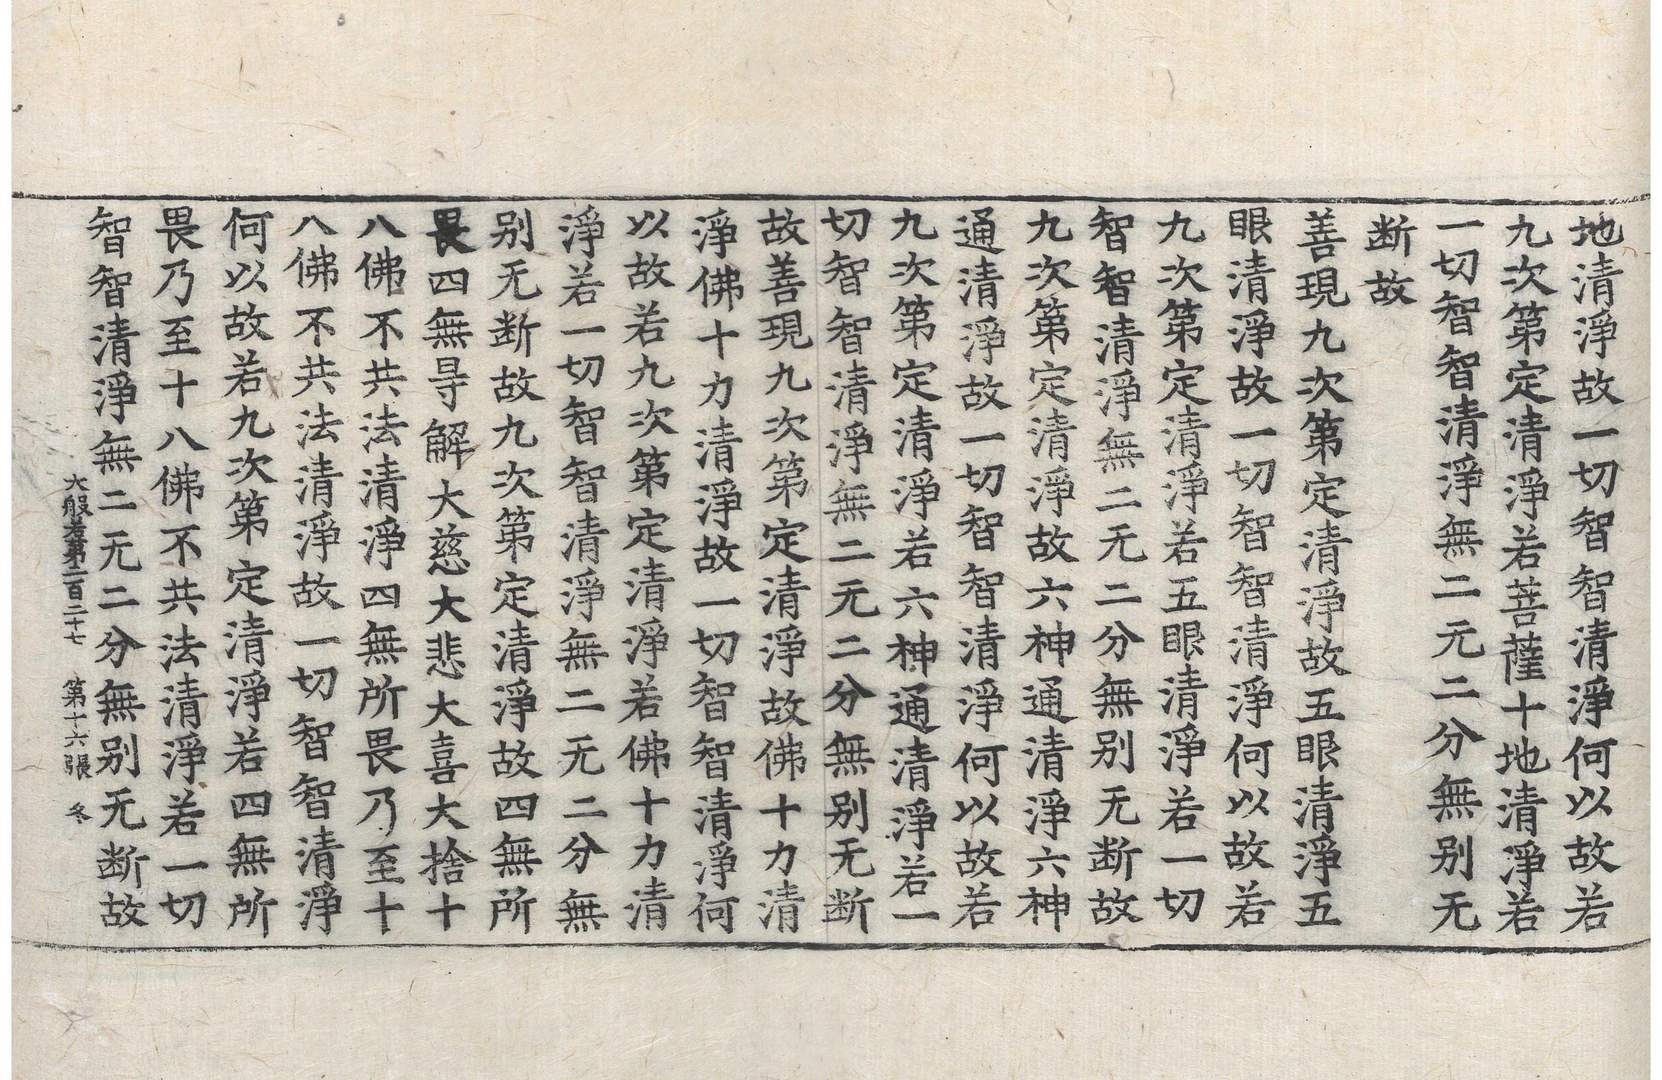 地清淨故一切智智清淨何以故若
九次第定清淨若菩薩十地清淨若
一切智智清淨無二无二分無别无
断故
善現九次第定清淨故五眼清淨五
眼清淨故一切智智清淨何以故若
九次第定清淨若五眼清淨若一切
智智清淨無二无二分無别无断故
九次第定清淨故六神通清淨六神
通清淨故一切智智清淨何以故若
九次第定清淨若六神通清淨若一
切智智清淨無二无二分無别无断
故善現九次第定清淨故佛十力清
淨佛十力清淨故一切智智清淨何
以故若九次第定清淨若佛十力清
淨若一切智智清淨無二无二分無
别无断故九次第定清淨故四無所
畏四無㝵解大慈大悲大喜大捨十
八佛不共法清淨四無所畏乃至十
八佛不共法清淨故一切智智清淨
何以故若九次第定清淨若四無所
畏乃至十八佛不共法清淨若一切
智智清淨無二无二分無别无断故
大般若第二百二十七 第十六張 冬